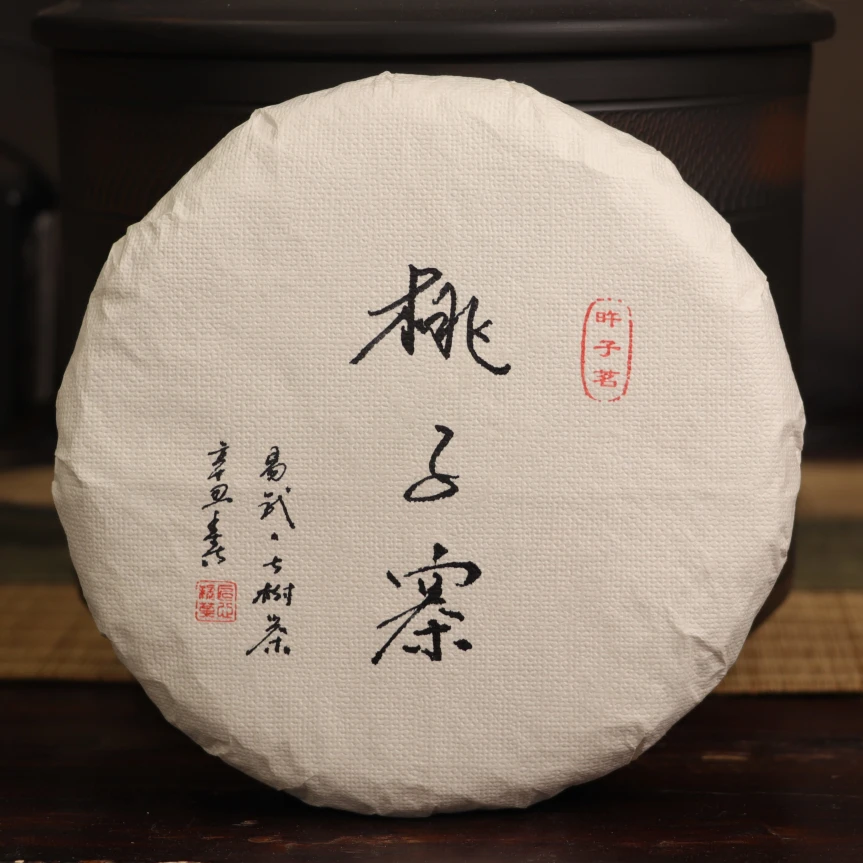 旿子茗
桃子寨
易武·古树茶
辛丑春